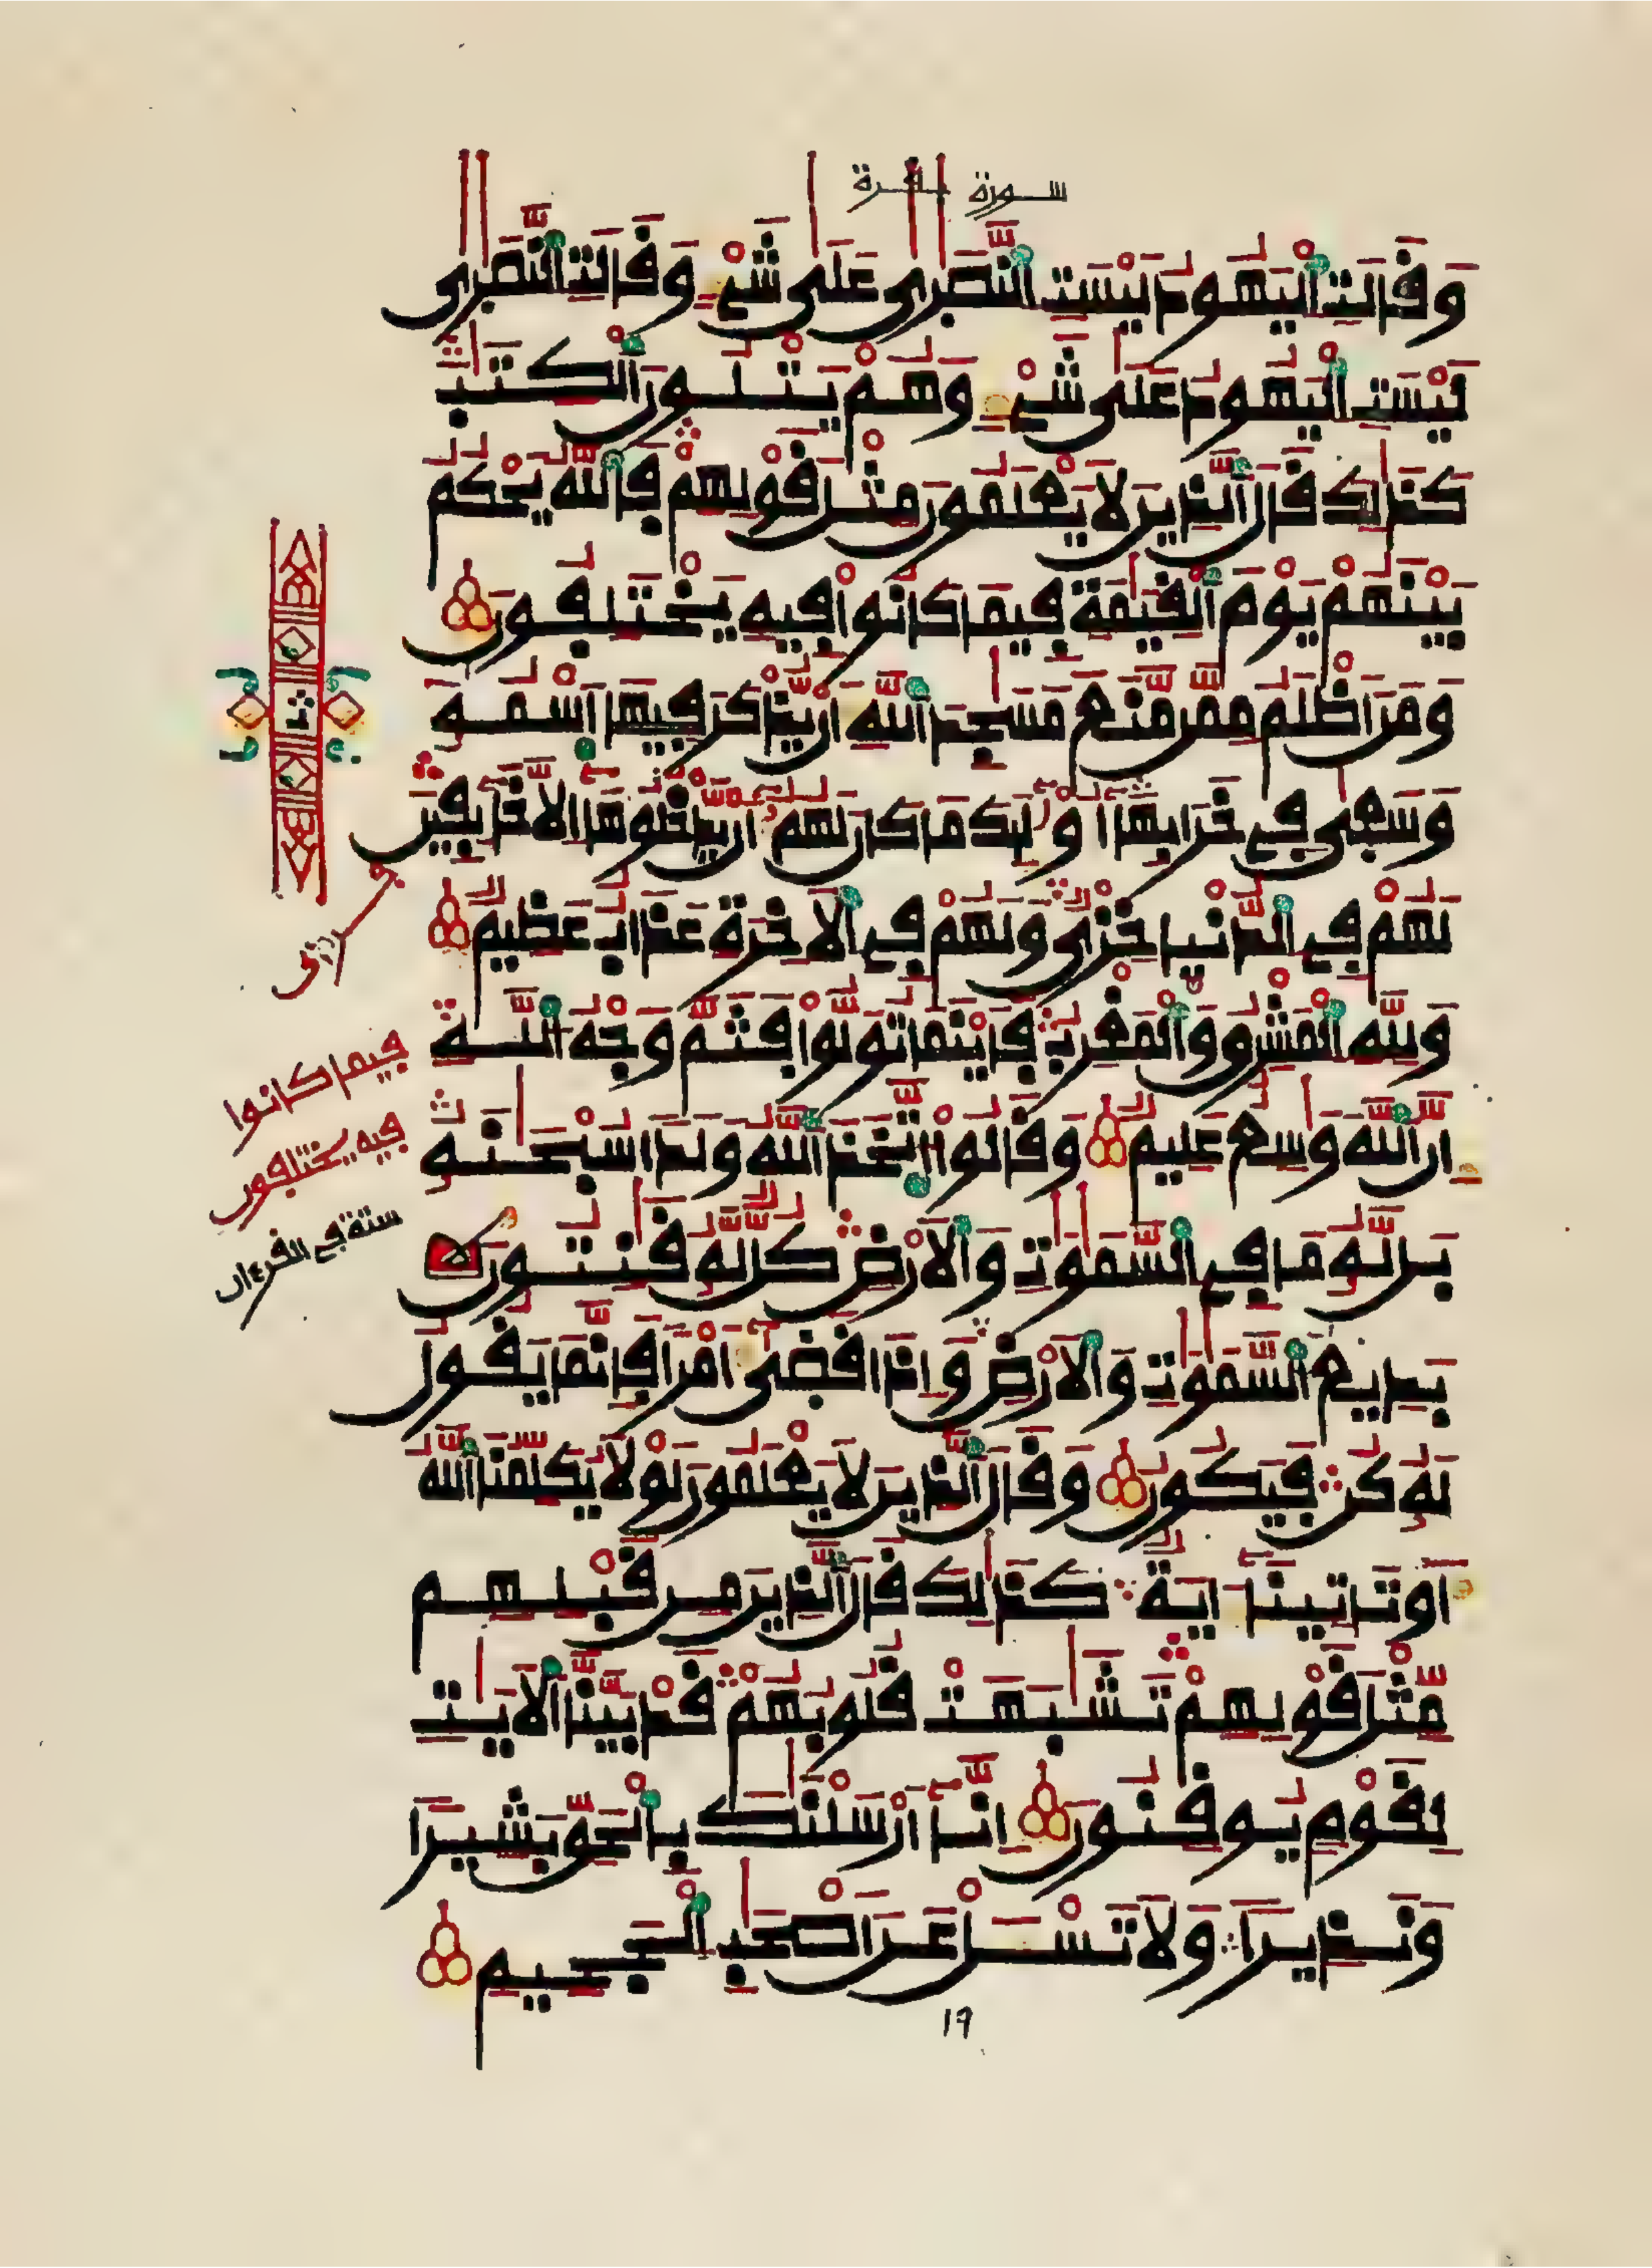 سورة بقرة
وَقَالَتِ اِ۬لْيَهُودُ لَيْسَتِ اِ۬لنَّصَٰرٰي عَلَىٰ شَےْءٖ وَقَالَتِ اِ۬لنَّصَٰرٰي
لَيْسَتِ اِ۬لْيَهُودُ عَلَىٰ شَےْءٖ وَهُمْ يَتْلُونَ اَ۬لْكِتَٰبَ
كَذَٰلِكَ قَالَ اَ۬لذِينَ لَا يَعْلَمُونَ مِثْلَ قَوْلِهِمْ فَاللَّهُ يَحْكُمُ
بَيْنَهُمْ يَوْمَ اَ۬لْقِيَٰمَةِ فِيمَا كَانُواْ فِيهِ يَخْتَلِفُونَ
وَمَنَ اَظْلَمُ مِمَّن مَّنَعَ مَسَٰجِدَ اَ۬للَّهِ أَنْ يُّذْكَرَ فِيهَا اَ۪سْمُهُۥ
وَسَعَىٰ فِے خَرَابِهَا أُوْلَٰٓئِكَ مَا كَانَ لَهُمُۥٓ أَنْ يَّدْخُلُوهَآ إِلَّا خَآئِفِينَ
لَهُمْ فِے اِ۬لدُّنْيَا خِزْيٞ وَلَهُمْ فِے اِ۬لَاخِرَةِ عَذَابٌ عَظِيمٞ
وَلِلهِ اِ۬لْمَشْرِقُ وَالْمَغْرِبُ فَأَيْنَمَا تُوَلُّواْ فَثَمَّ وَجْهُ اُ۬للَّهِ
إِنَّ اَ۬للَّهَ وَٰسِعٌ عَلِيمٞ وَقَالُواْ اُ۪تَّخَذَ اَ۬للَّهُ وَلَداٗ سُبْحَٰنَهُۥ
بَل لَّهُۥ مَا فِے اِ۬لسَّمَٰوَٰتِ وَالَارْضِ كُلّٞ لَّهُۥ قَٰنِتُونَ
بَدِيعُ اُ۬لسَّمَٰوَٰتِ وَالَارْضِ وَإِذَا قَضَىٰٓ أَمْراٗ فَإِنَّمَا يَقُولُ
لَهُۥ كُن فَيَكُونُ وَقَالَ اَ۬لذِينَ لَا يَعْلَمُونَ لَوْلَا يُكَلِّمُنَا اَ۬للَّهُ
أَوْ تَاتِينَآ ءَايَةٞ كَذَٰلِكَ قَالَ اَ۬لذِينَ مِن قَبْلِهِم
مِّثْلَ قَوْلِهِمْ تَشَٰبَهَتْ قُلُوبُهُمْ قَدْ بَيَّنَّا اَ۬لَايَٰتِ
لِقَوْمٖ يُوقِنُونَ إِنَّآ أَرْسَلْنَٰكَ بِالْحَقِّ بَشِيراٗ
وَنَذِيراٗ وَلَا تَسْـَٔلْ عَنَ اَصْحَٰبِ اِ۬لْجَحِيمِ
فيما كانوا
فيه يختلفون
ستة في القرءان
19